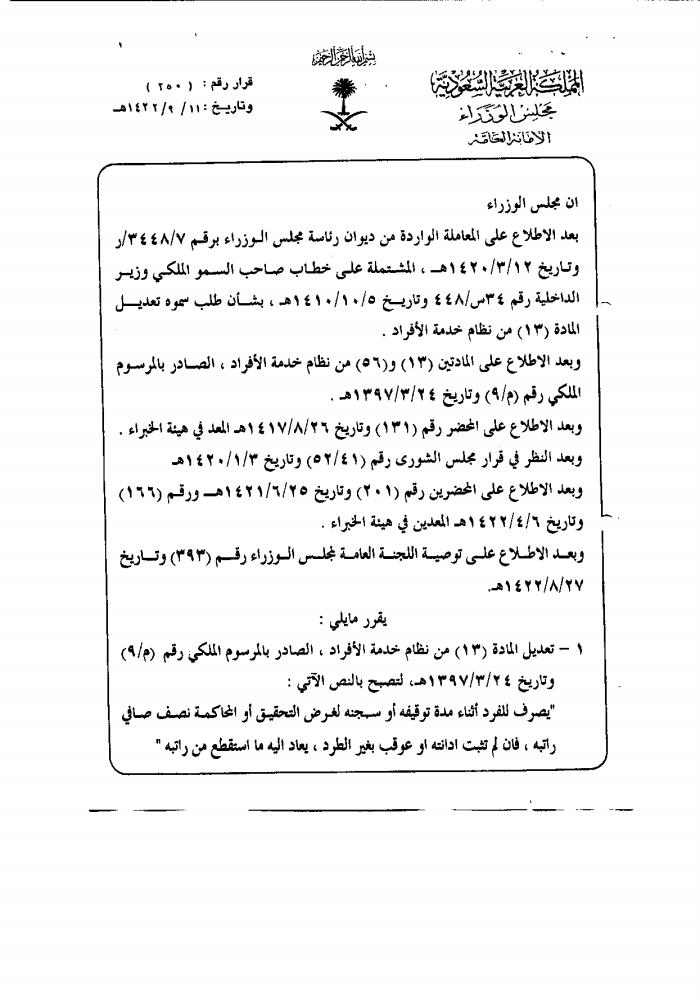 بسم الله الرحمن الرحيم
المملكة العربية السعودية
مجلس الوزراء
الأمانة العامة
قرار رقم : ( ٢٥٠ )
وتاريخ : ١١/ ٩ / ١٤٢٢هـ
ان مجلس الوزراء
بعد الاطلاع على المعاملة الواردة من ديوان رئاسة مجلس الوزراء برقم ٣٤٤٨/٧/ر
وتاريخ ١٤٢٠/٣/١٢هـ ، المشتملة على خطاب صاحب السمو الملكي وزير
الداخلية رقم ٣٤س/٤٤٨ وتاريخ ١٤١٠/١٠/٥هـ ، بشأن طلب سموه تعديل
المادة (١٣) من نظام خدمة الأفراد .
وبعد الاطلاع على المادتين (١٣) و(٥٦) من نظام خدمة الأفراد ، الصادر بالمرسوم
الملكي رقم (م/٩) وتاريخ ١٣٩٧/٣/٢٤هـ .
وبعد الاطلاع على المحضر رقم (١٣١) وتاريخ ١٤١٧/٨/٢٦هـ المعد في هيئة الخبراء .
وبعد النظر في قرار مجلس الشورى رقم (٥٢/٤١) وتاريخ ١٤٢٠/١/٣هـ
وبعد الاطلاع على المحضرين رقم (٢٠١) وتاريخ ١٤٢١/٦/٢٥هـ ورقم (١٦٦)
وتاريخ ١٤٢٢/٤/٦هـ المعدين في هيئة الخبراء .
وبعد الاطلاع على توصية اللجنة العامة لمجلس الوزراء رقم (٣٩٣) وتاريخ
١٤٢٢/٨/٢٧هـ.
يقرر مايلي :
١ – تعديل المادة (١٣) من نظام خدمة الأفراد ، الصادر بالمرسوم الملكي رقم (م/٩)
وتاريخ ١٣٩٧/٣/٢٤هـ، لتصبح بالنص الآتي :
"يصرف للفرد أثناء مدة توقيفه أو سجنه لغرض التحقيق أو المحاكمة نصف صافي
راتبه ، فان لم تثبت ادانته او عوقب بغير الطرد ، يعاد اليه ما استقطع من راتبه "